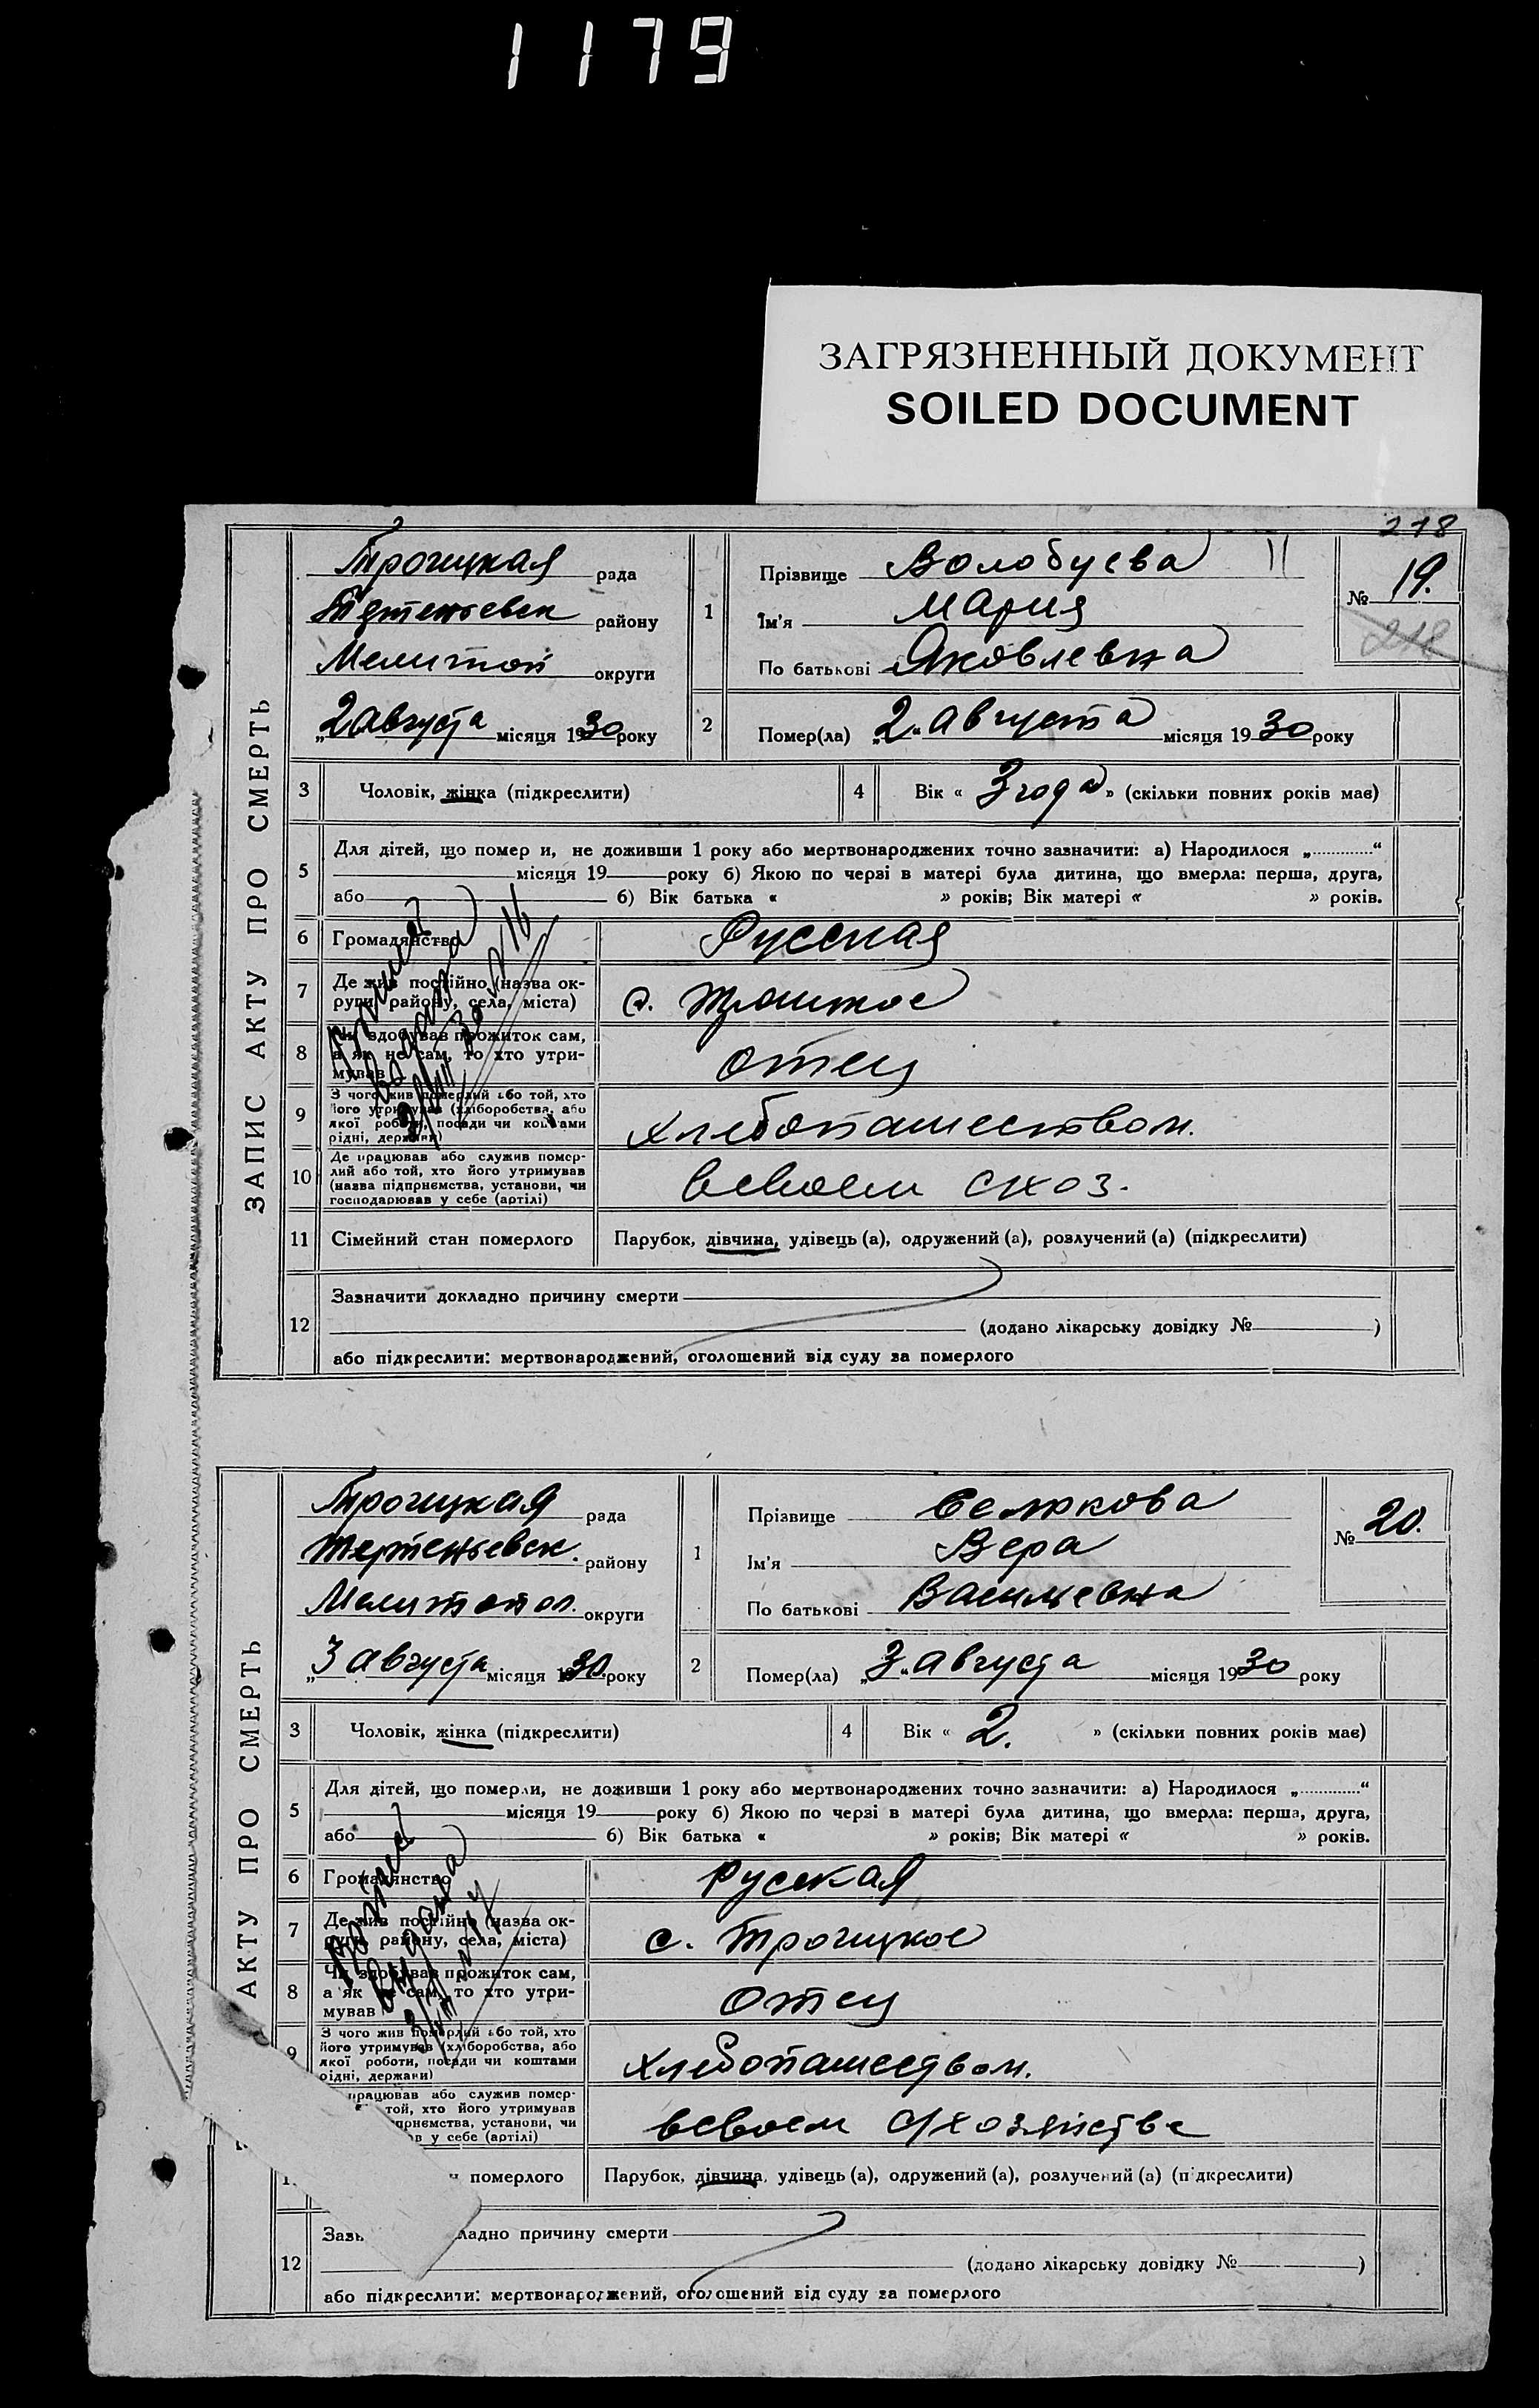 1179
ЗАГРЯЗНЕННЫЙ ДОКУМЕНТ
SOILED DOCUMENT
218
ЗАПИС АКТУ ПРО СМЕРТЬ
Троицкая рада
района району
Мелитоп округи
„2 августа місяця 1930 року
1
Прізвище Волобуева
Ім'я Мария
По батькові Яковлевна
№ 19.
218
2
Помер(ла) „2" августа місяця 1930 року
3 Чоловік, жінка (підкреслити)
4 Вік « 3 года » (скільки повних років має)
5 Для дітей, що помер и, не доживши 1 року або мертвонароджених точно зазначити: а) Народилося „............“
місяця 19 року б) Якою по черзі в матері була дитина, що вмерла: перша, друга,
або б) Вік батька « » років; Вік матері « » років.
6 Громадянство Русская
7 Де жив постійно (назва ок-
руги, району, села, міста) с. Троицкое
8 Чи здобував прожиток сам,
а як не сам, то хто утри-
мував отец
9 З чого жив померлий або той, хто
його утримував (хліборобства, або
якої роботи, посади чи коштами
рідні, держави) хлебопашеством.
10 Де працював або служив помер-
лий або той, хто його утримував
(назва підпрнємства, установи, чи
господарював у себе (артілі) всвоем схоз.
11 Сімейний стан померлого Парубок, дівчина, удівець (а), одружений (а), розлучений (а) (підкреслити)
12 Зазначити докладно причину смерти
(додано лікарську довідку № )
або підкреслити: мертвонароджений, оголошений від суду за померлого
АКТУ ПРО СМЕРТЬ
Троицкая рада
Тертеньевск. району
Мелитопол. округи
„3 августа місяця 1930 року
1
Прізвище Селюкова
Ім'я Вера
По батькові Васильевна
№ 20.
2
Помер(ла) „3" августа місяця 1930 року
3 Чоловік, жінка (підкреслити)
4 Вік « 2. » (скільки повних років має)
5 Для дітей, що померли, не доживши 1 року або мертвонароджених точно зазначити: а) Народилося „............“
місяця 19 року б) Якою по черзі в матері була дитина, що вмерла: перша, друга,
або б) Вік батька « » років; Вік матері « » років.
6 Громадянство Русская
7 Де жив постійно (назва ок-
руги, району, села, міста) с. Троицкое
8 Чи здобував прожиток сам,
а як не сам, то хто утри-
мував отец
9 З чого жив померлий або той, хто
його утримував (хліборобства, або
якої роботи, посади чи коштами
рідні, держави) хлебопашеством.
працював або служив помер-
той, хто його утримував
прнємства, установи, чи
у себе (артілі) всвоем с/хозяйстве
померлого Парубок, дівчина, удівець (а), одружений (а), розлучений (а) (підкреслити)
12 докладно причину смерти
(додано лікарську довідку № )
або підкреслити: мертвонароджений, оголошений від суду за померлого